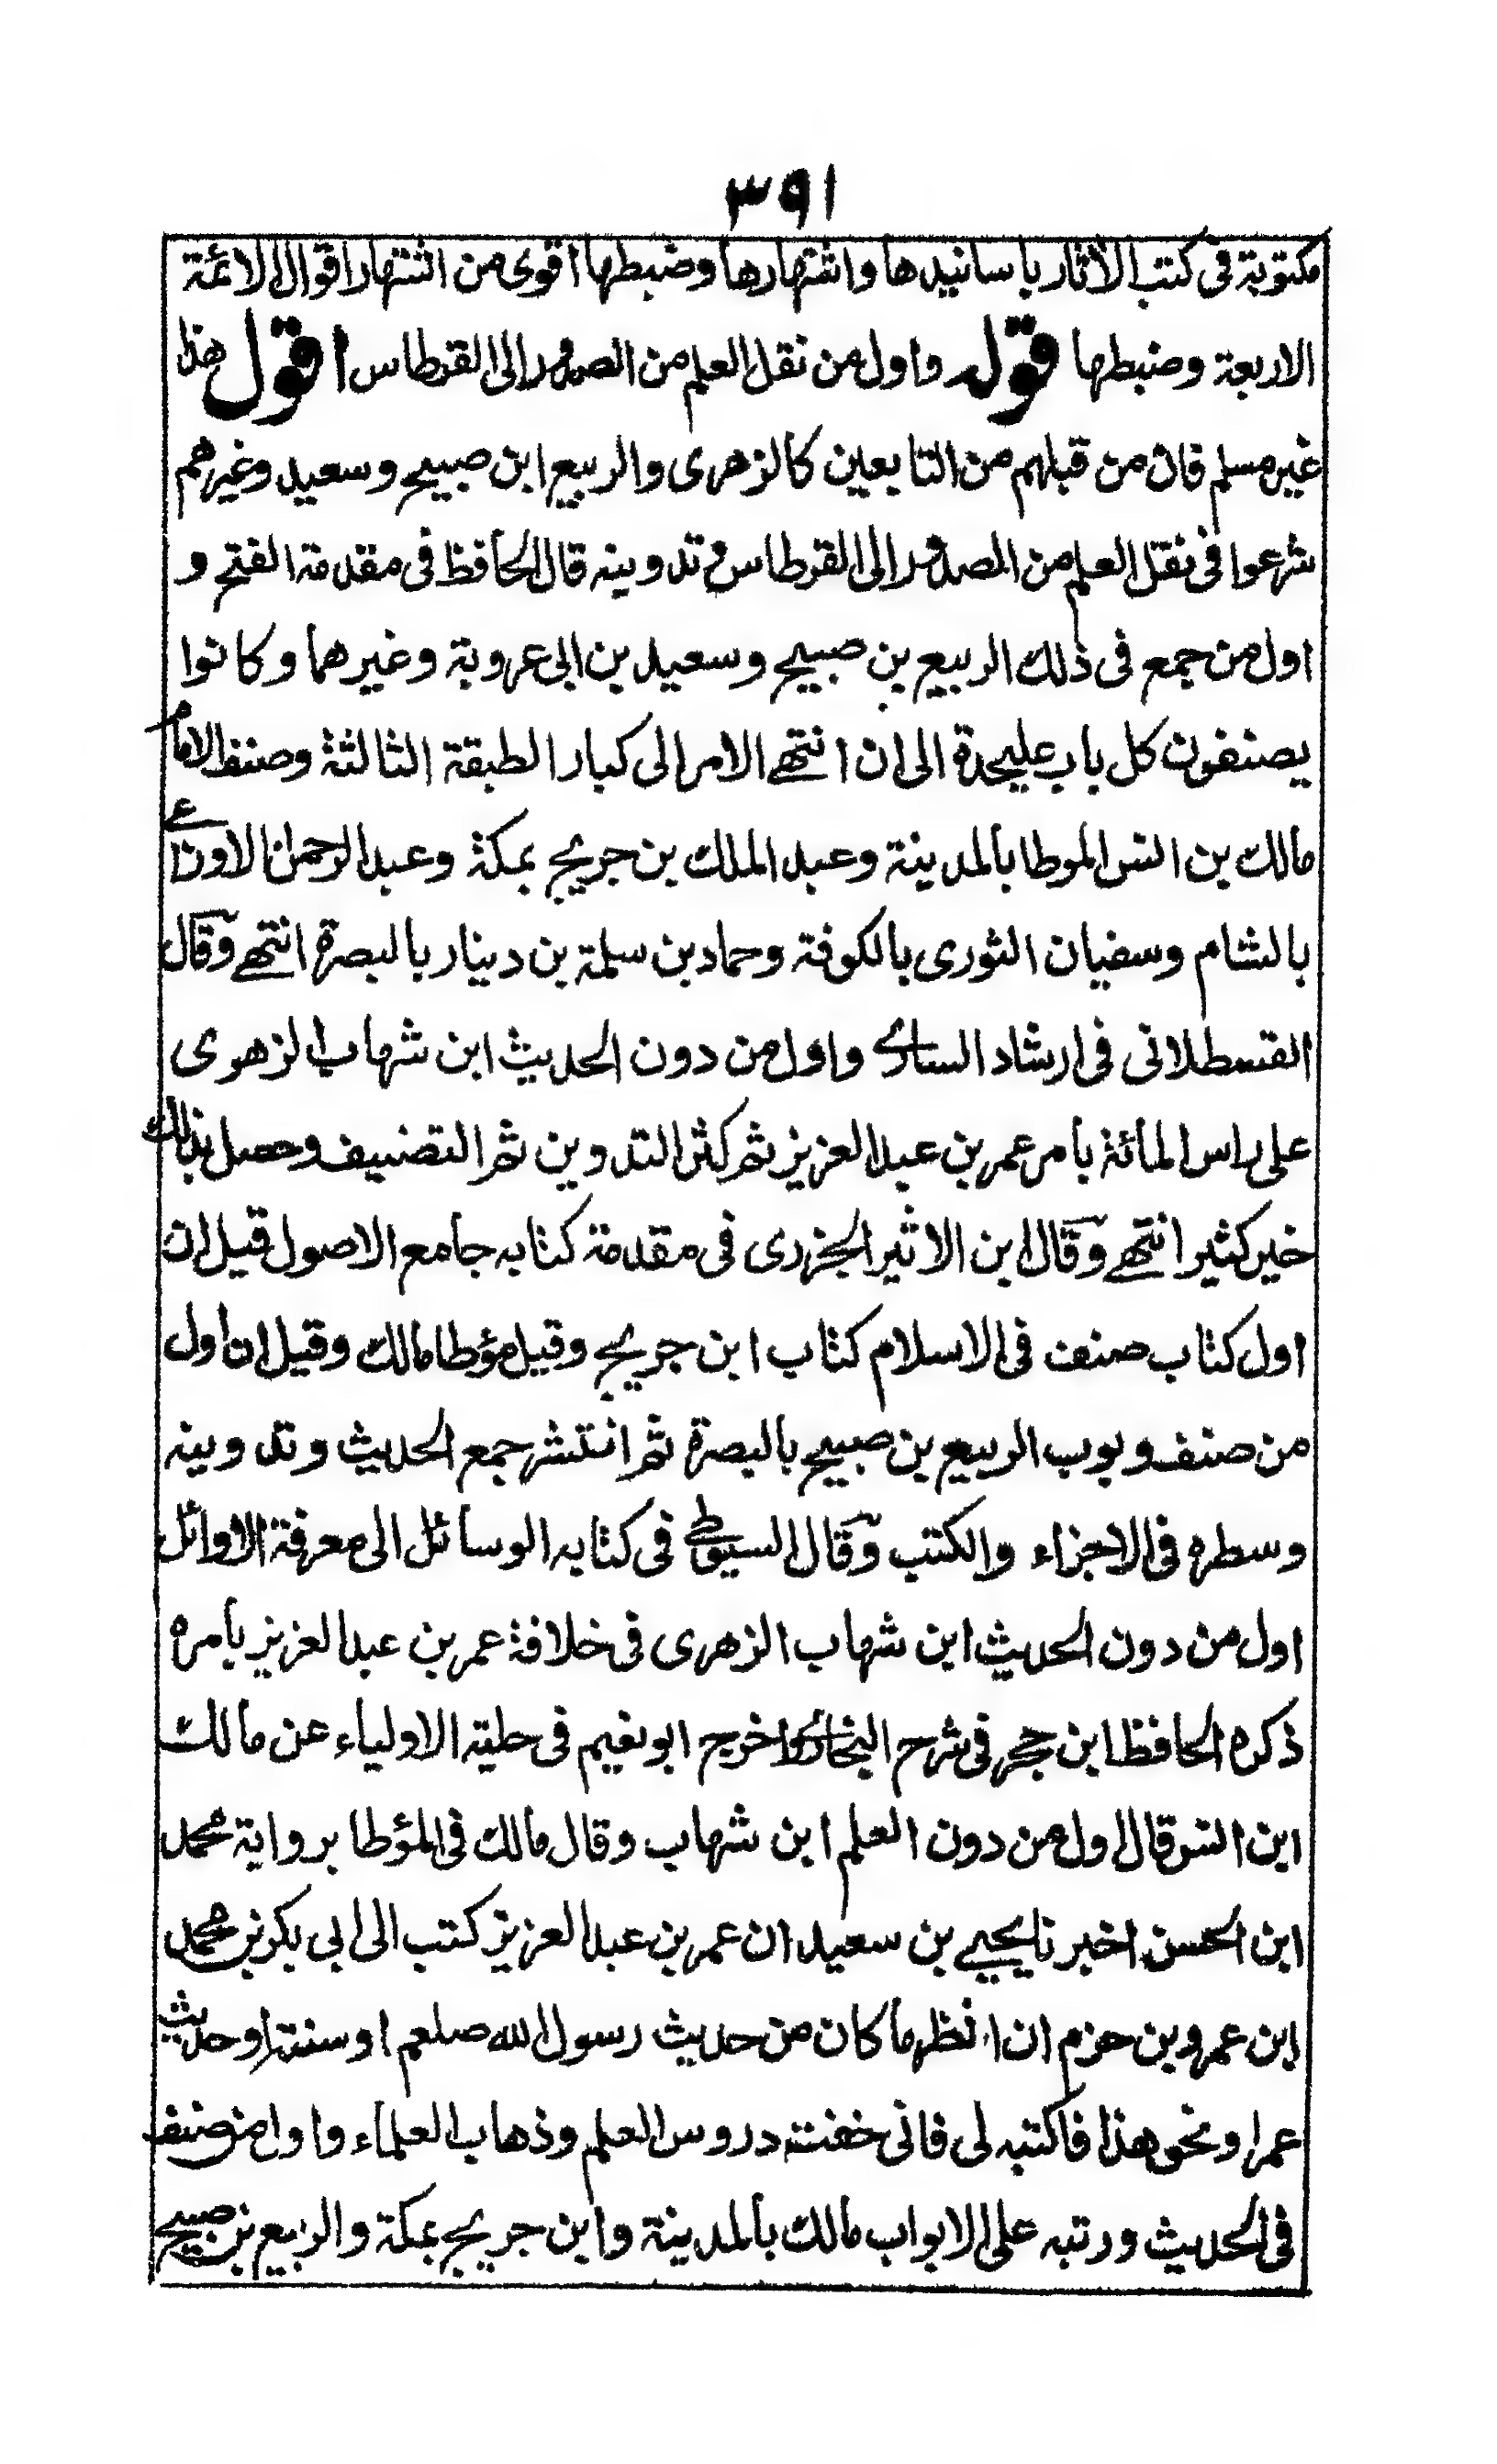 ٣٩١
مكتوبة فى كتب الآثار باسانيدها واشتهارها وضبطها اقوى من اشتهار اقوال الائمة
الاربعة وضبطها قوله واول من نقل العلم من الصدور الى القرطاس اقول هذا
غير مسلم فان من قبلهم من التابعين كالزهرى والربيع ابن صبيح وسعيد وغيرهم
شرعوا فى نقل العلم من الصدور الى القرطاس وتدوينه قال الحافظ فى مقدمة الفتح و
اول من جمع فى ذلك الربيع بن صبيح وسعيد بن ابى عروبة وغيرهما وكانوا
يصنفون كل باب عليحدة الى ان انتهے الامر الى كبار الطبقة الثالثة وصنف الامام
مالك بن انس الموطا بالمدينة وعبد الملك بن جريج بمكة وعبد الرحمن الاوزاعے
بالشام وسفيان الثورى بالكوفة وحماد بن سلمة بن دينار بالبصرة انتهے وقال
القسطلانى فى ارشاد السارے واول من دون الحديث ابن شهاب الزهرى
على راس المائة بامر عمر بن عبد العزيز ثم كثر التدوين ثم التصنيف وحصل بذلك
خير كثير انتهے وقال ابن الاثير الجزرى فى مقدمة كتابه جامع الاصول قيل ان
اول كتاب صنف فى الاسلام كتاب ابن جريج وقيل مؤطا مالك وقيل ان اول
من صنف وبوب الربيع بن صبيح بالبصرة ثم انتشر جمع الحديث وتدوينه
وسطره فى الاجزاء والكتب وقال السيوطے فى كتابه الوسائل الى معرفة الاوائل
اول من دون الحديث ابن شهاب الزهرى فى خلافة عمر بن عبد العزيز بامره
ذكره الحافظ ابن حجر فى شرح البخارى اخرج ابو نعيم فى حلية الاولياء عن مالك
ابن انس قال اول من دون العلم ابن شهاب وقال مالك فى المؤطا برواية محمد
ابن الحسن اخبرنا يحيے بن سعيد ان عمر بن عبد العزيز كتب الى ابى بكر بن محمد
ابن عمرو بن حزم ان انظر ما كان من حديث رسول الله صلعم او سنة او حديث
عمر او نحو هذا فاكتبه لى فانى خفت دروس العلم وذهاب العلماء واول من صنف
فى الحديث ورتبه على الابواب مالك بالمدينة وابن جريج بمكة والربيع بن صبيح